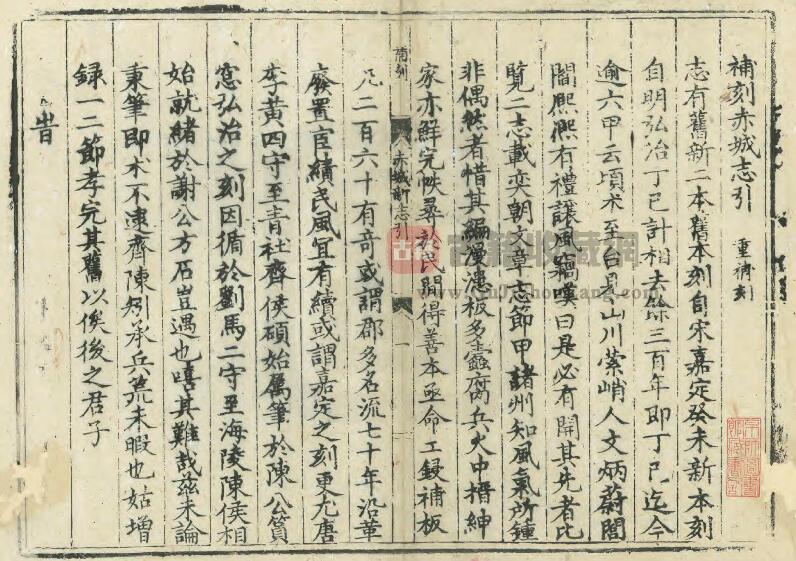 補刻赤城志引 重補刻
志有舊新二本舊本刻自宋嘉定癸未新本刻
自明弘治丁巳計相去餘三百年即丁巳迄今
逾六甲云頃术至台見山川縈峭人文炳蔚閭
閻熙熙有禮讓風竊嘆曰是必有開其先者比
覽二志載奕朝文章志節甲諸州知風氣所鍾
非偶然者惜其編漫漶板多蠹腐兵火中搢紳
家亦鮮完帙尋於民間得善本亟命工鋟補板
補刻
赤城新志引
一
凡二百六十有奇或謂郡多名流七十年沿革
廢置宦績民風宜有續或謂嘉定之刻更尤唐
李黃四守至青社齊侯碩始属筆於陳公篔
窓弘治之刻因循於劉馬二守至海陵陳侯相
始就緒於謝公方石豈遇也嘻其難哉茲未論
秉筆即术不逮齊陳矧承兵荒未暇也姑增
録一二節孝完其舊以俟後之君子
旹
古籍收藏网